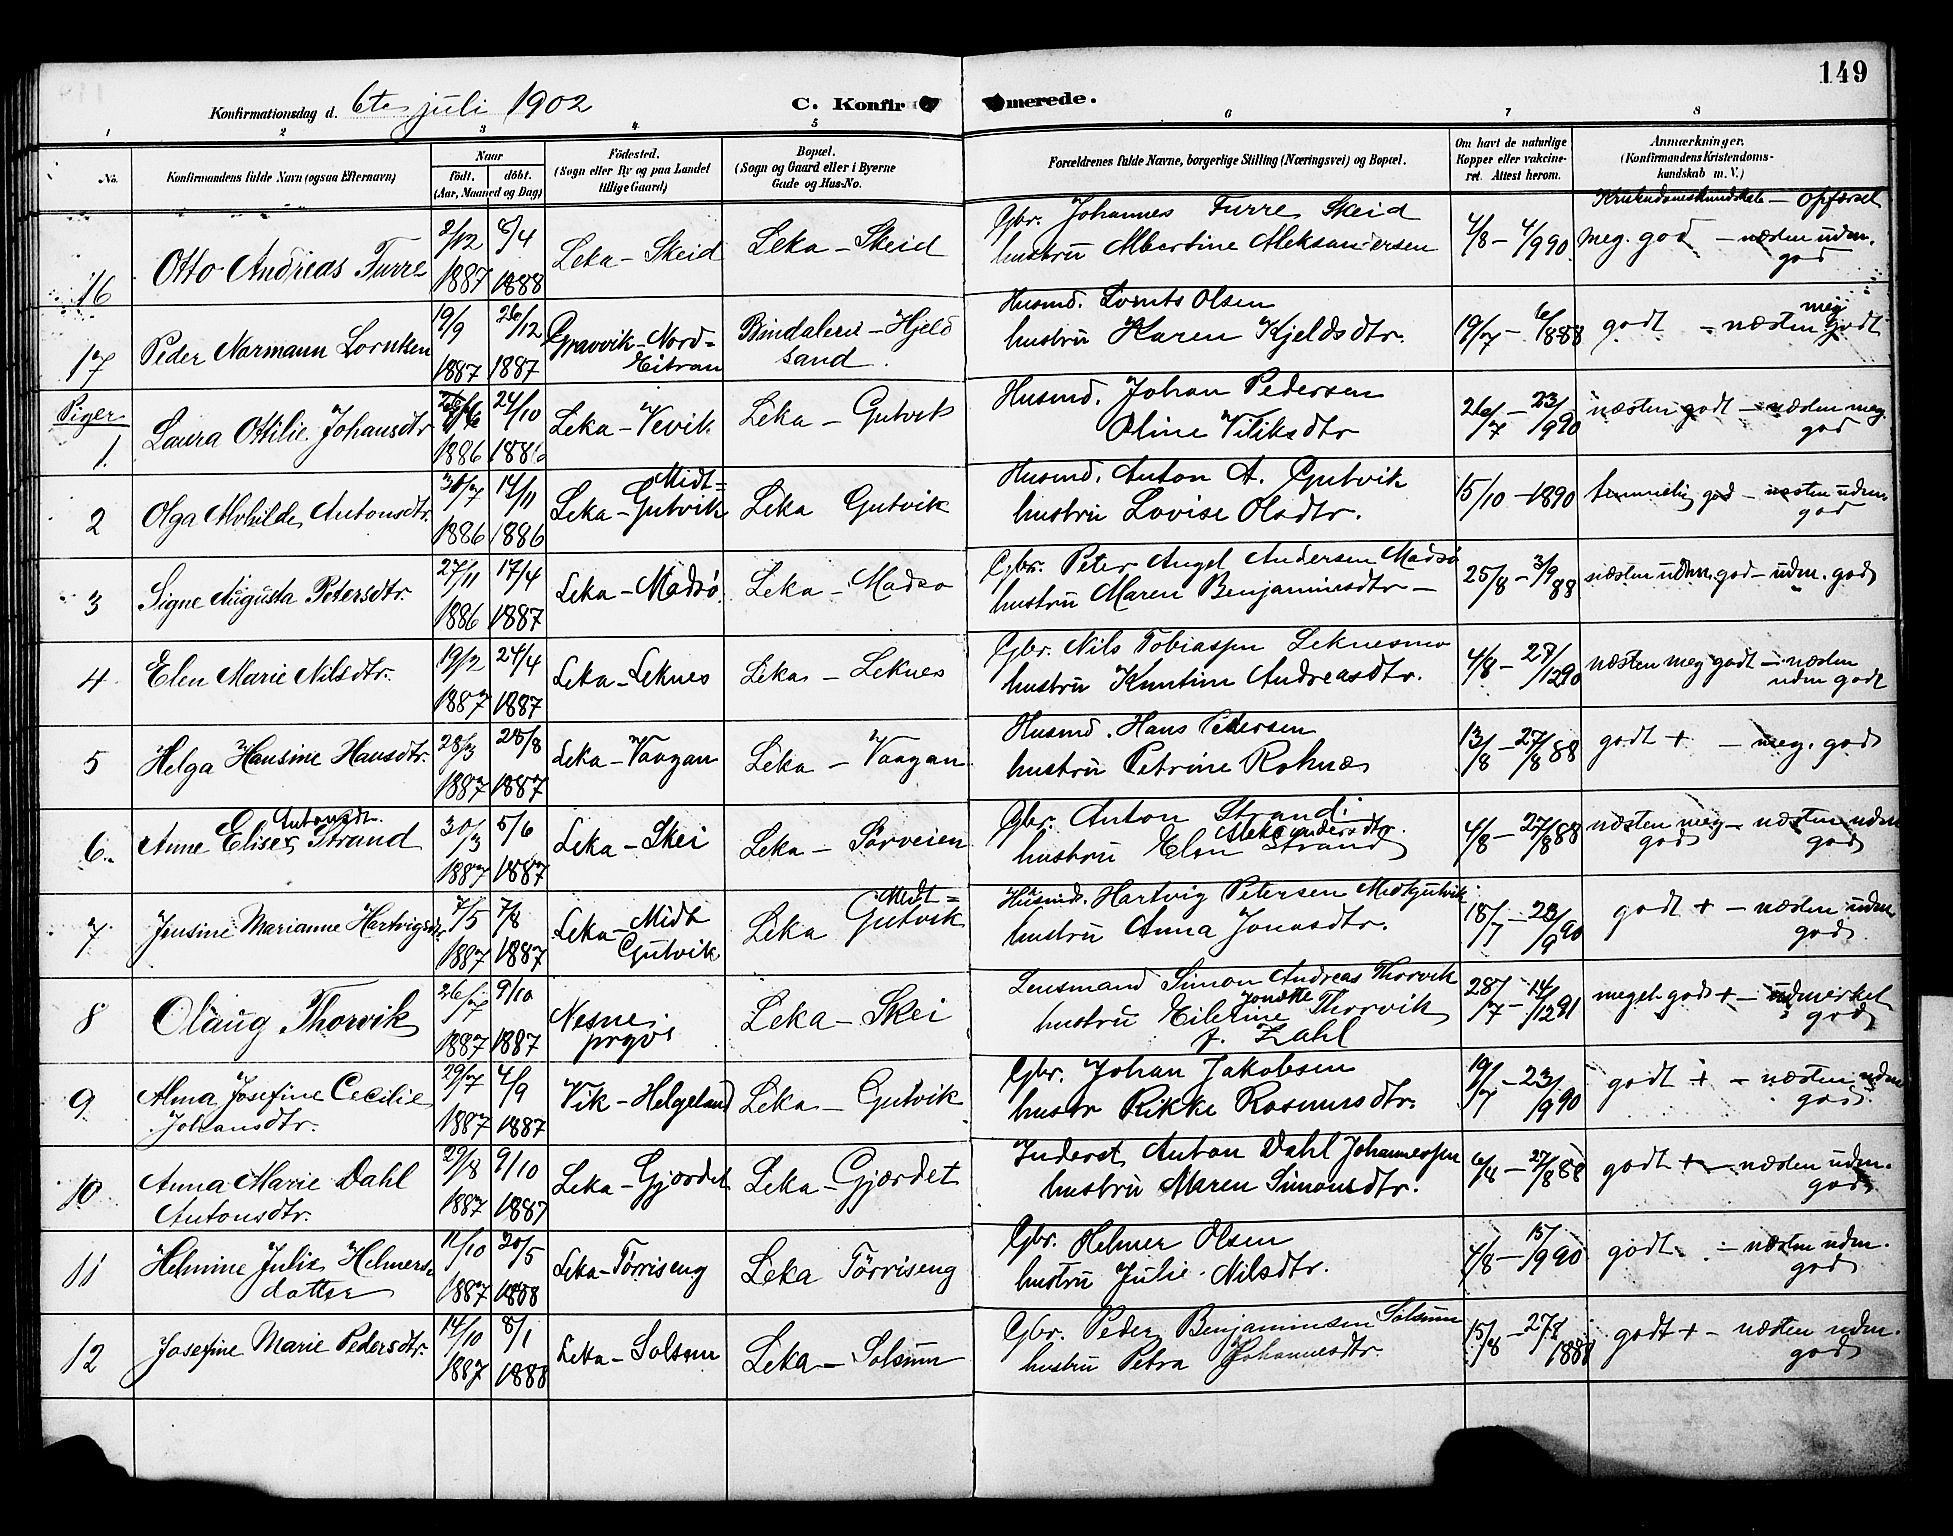 149
Konfirmationsdag d. 6te juli 1902 C. Konfirmerede.
1 2 3 4 5 6 7 8
No. Konfirmandens fulde Navn (ogsaa Efternavn) Naar född. döbt. (Aar, Maaned og Dag) Födested. (Sogn eller By og paa Landet tillige Gaard) Bopæl. (Sogn og Gaard eller i Byerne Gade og Hus-No. Forældrenes fulde Navne, borgerlige Stilling (Næringsvei) og Bopæl. Om havt de naturlige Kopper eller vakcineret. Attest herom. Anmærkninger. (Konfirmandens Kristendomskundskab m. V.)
Kristendomskundskab - opførsel
16 Otto Andreas Furre 2/12 1887 /4 1888 Leka - Skeid Leka - Skeid Gbr. Johannes Furre Skeid
hustru Albertine Aleksandersen 4/8 - 4/9 90 meg. god - næsten udm. god
17 Peder Normann Lorntsen 19/9 1887 26/12 1887 Gravvik - Nord=Eitran Bindalen - Hjelsand Husmd. Lornts Olsen
hustru Karen Kjeldsdtr. 19/7 - 6/8 88 godt - næsten meg godt
Piger
1. Laura Ottilie Johansdtr 1886 24/10 1886 Leka - Vevik Leka - Gutvik Husmd. Johan Pedersen
Oline 26/7 - 23/9 90 næsten godt - næsten meg. god
2 Olga Alvhilde Antonsdtr. 30/7 1886 14/11 1886 Leka - Midt=Gutvik Leka Gutvik Husmd. Anton A. Gutvik
hustru Lovise Olsdtr. 15/10 - 1890 temmelig god - næsten udm god
3 Signe Augusta Petersdtr. 27/11 1886 17/4 1887 Leka - Madsø. Leka - Madsø Gbr. Peter Angel Andersen Madsø
hustru Maren Benjaminsdtr - 25/8 - 3/9 88 næsten udm. god - udm. god
4 Elen Marie Nilsdtr. 19/2 1887 24/4 1887 Leka - Leknes Leka - Leknes Gbr. Nils Tobiassen Leknesmo
hustru Andreasdtr. 4/8 - 27/12 90 næsten meg godt - næsten udm godt
5 Helga Hansine Hansdtr. 28/3 1887 28/8 1887 Leka - Vaagan Leka - Vaagan Husmd. Hans Pedersen
hustru Petrine 13/8 - 27/8 88 godt + - meg. god
6. Anne Elises Antonsdt. Strand 30/3 1887 5/6 1887 Leka - Skei Leka - Sørveien Gbr. Anton Strand
hustru Elen Aleksandersdtr. Strand 4/8 - 27/8 88 næsten meg god - næsten udm god
7 Jensine Marianne Hartvigsdtr 7/5 1887 7/8 1887 Leka - Midt Gutvik Leka Midt=Gutvik Husmd. Hartvig Petersen Midtgutvik
hustru Anna Jonasdtr. 18/7 - 23/9 90 godt + - næsten udm god
8 Olaug Thorvik 26/7 1887 9/10 1887 Nesne prgd. Leka - Skei Lensmand Simon Andreas Thorvik
hustru Eilertine Jonette Thorvik
f. Zahl 28/7 - 14/12 91 meget god + - udmerket god
9 Alma Josefine Cecilie
Johansdtr. 29/7 1887 4/9 1887 Vik - Helgeland Leka - Gutvik Gbr. Johan Jakobsen
hustr Rikke Rasmusdtr. 19/7 - 23/9 90 godt + - næsten udm god
10 Anna Marie Dahl
Antonsdtr. 29/8 1887 9/10 1887 Leka - Gjördet Leka - Gjördet Inderst Anton Dahl Johannessen
hustru Maren Simonsdtr. 6/8 - 27/8 88 godt + - næsten udm. god
11 Helmine Julie Helmers-
datter 11/10 1887 20/5 1888 Leka - Törriseng Leka Törriseng Gbr. Helmer Olsen
hustru Julie Nilsdtr. 4/8 - 15/9 90 godt - næsten udm. god
12 Josefine Marie Pedersdtr. 14/10 1887 8/1 1888 Leka - Solsem Leka - Solsem Gbr. Peder Benjaminsen Solsem
hustru Petra Johannesdtr. 15/8 - 27/8 1888 godt + - næsten udm. god